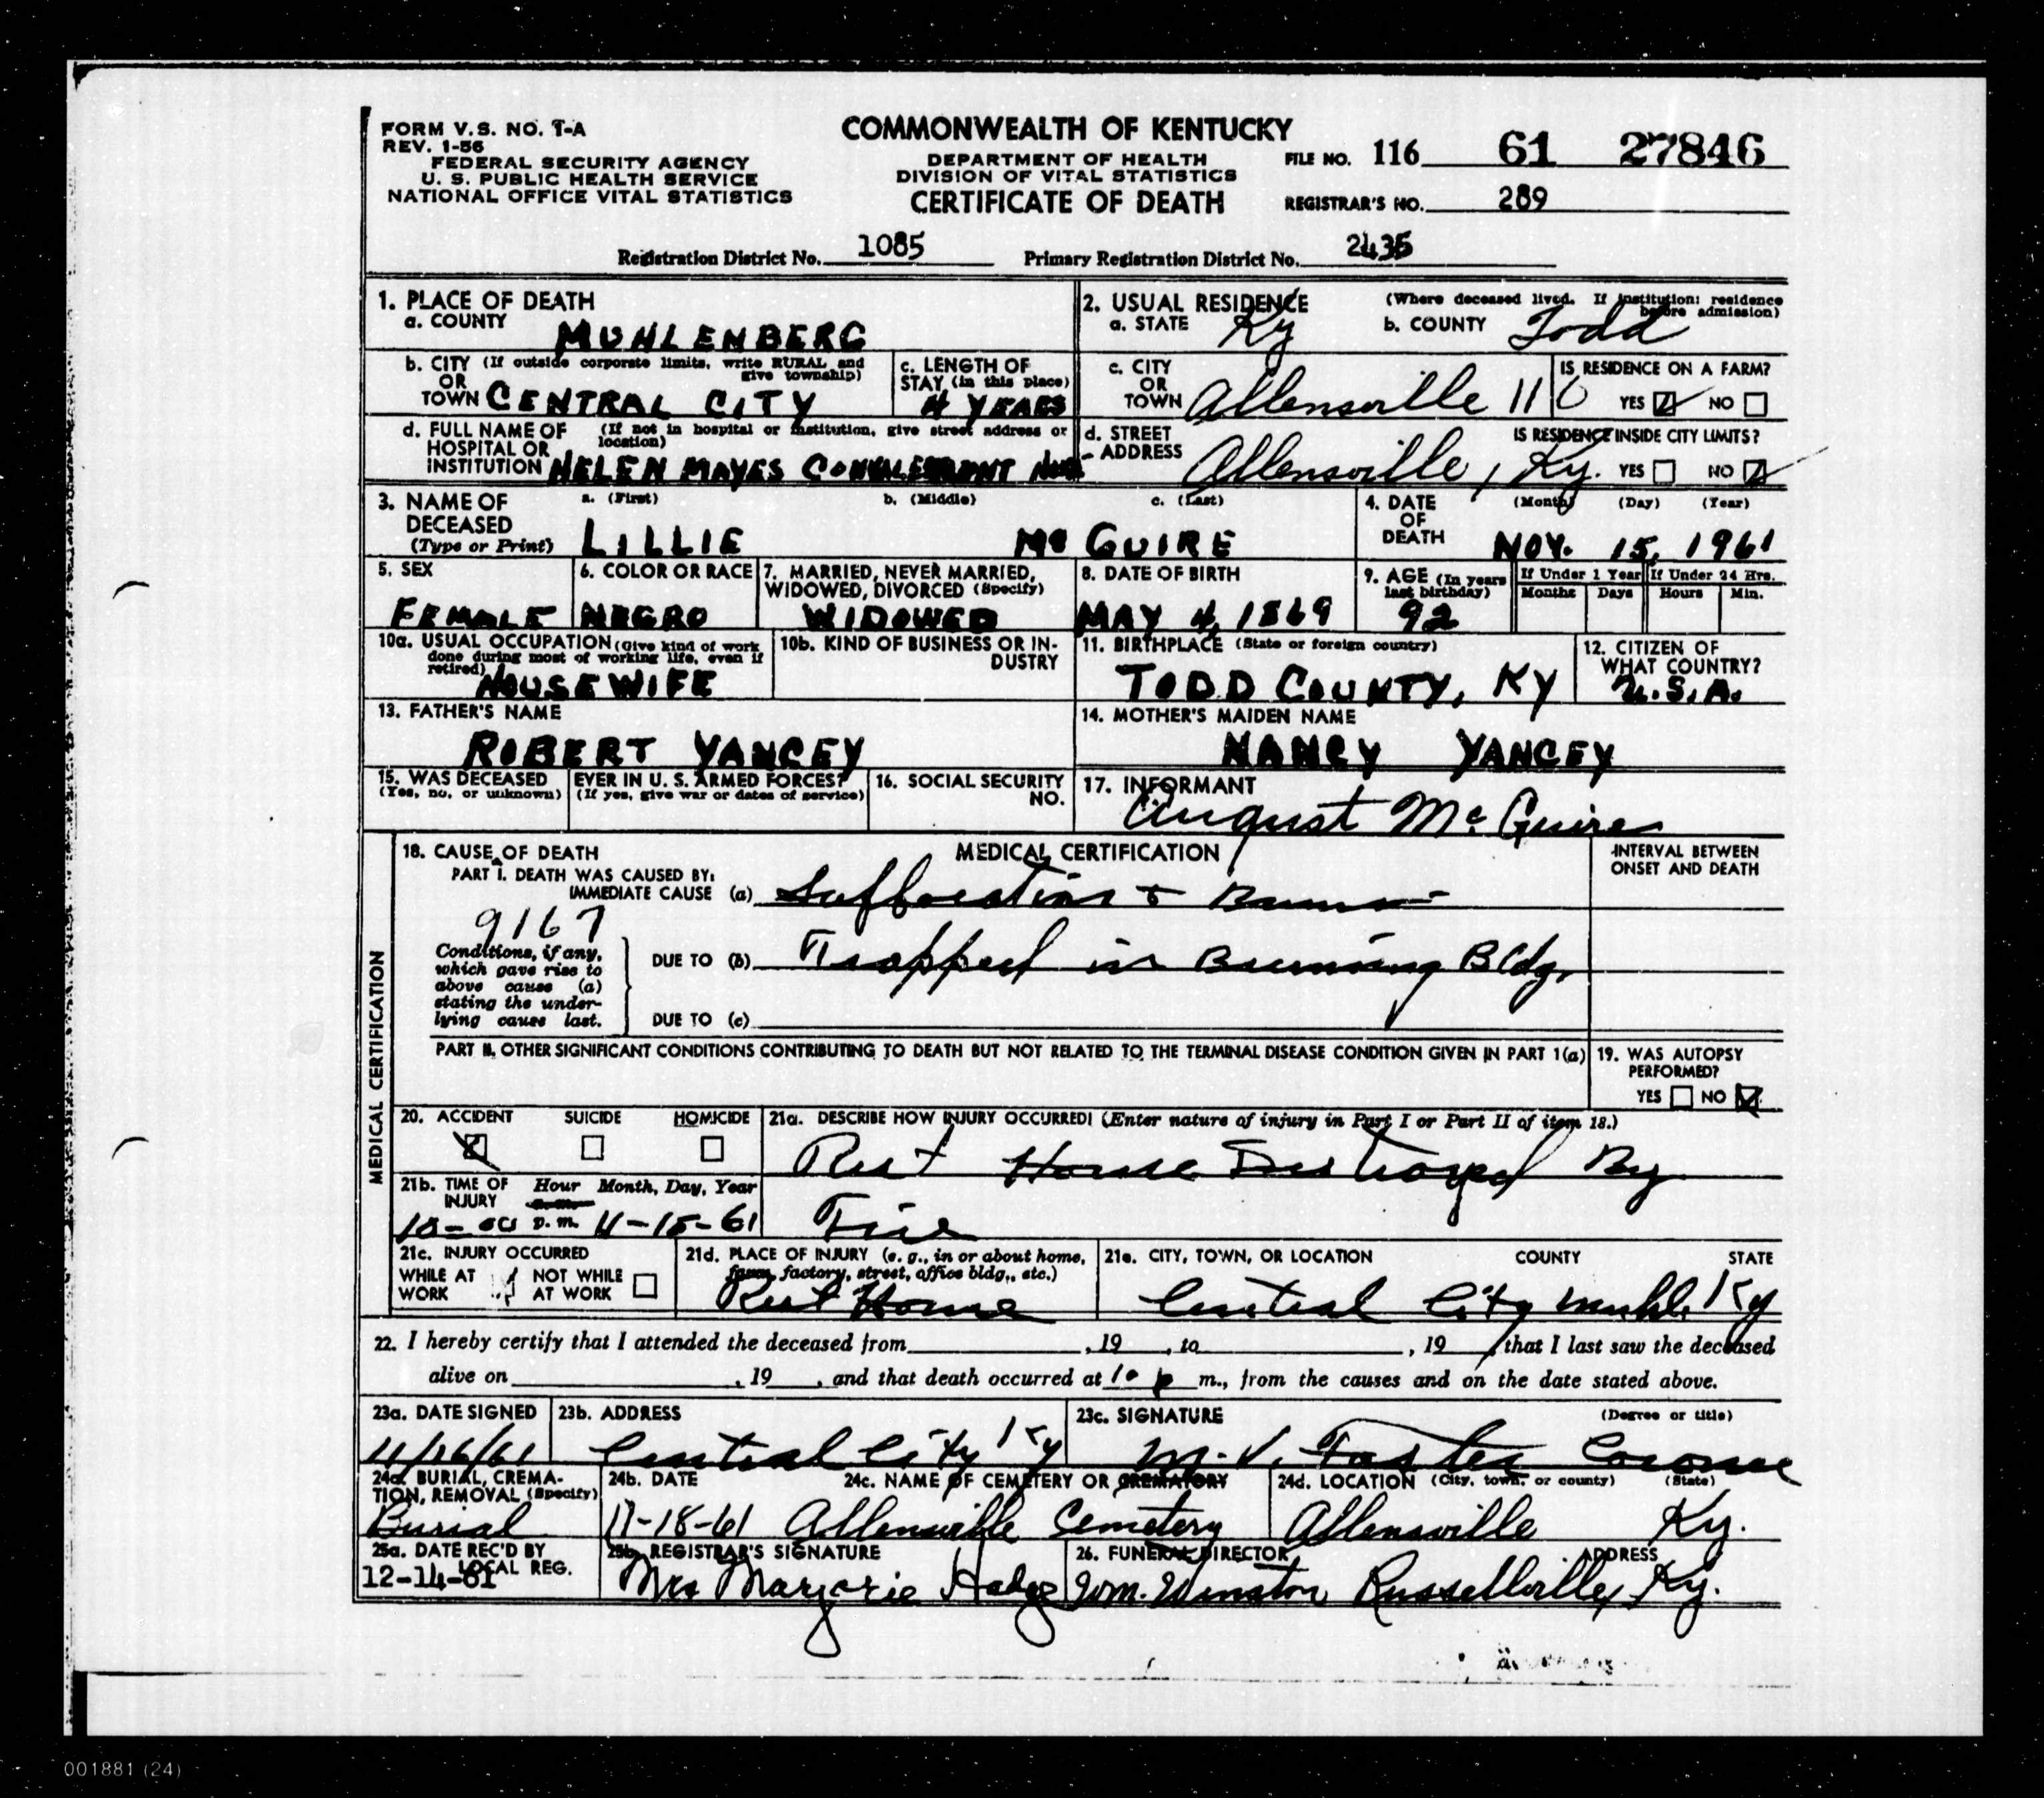 FORM V.S. NO. 1-A
REV. 1-56
FEDERAL SECURITY AGENCY
U. S. PUBLIC HEALTH SERVICE
NATIONAL OFFICE VITAL STATISTICS
COMMONWEALTH OF KENTUCKY
DEPARTMENT OF HEALTH
DIVISION OF VITAL STATISTICS
CERTIFICATE OF DEATH
FILE NO. 116 61 27846
REGISTRAR'S NO. 289
Registration District No. 1085 Primary Registration District No. 2435
1. PLACE OF DEATH
a. COUNTY MUHLENBERG
2. USUAL RESIDENCE (Where deceased lived. If institution: residence before admission)
a. STATE Ky b. COUNTY Todd
b. CITY (If outside corporate limits, write RURAL and give township)
OR
TOWN CENTRAL CITY
c. LENGTH OF
STAY (in this place)
4 YEARS
c. CITY
OR
TOWN Allensville 110
IS RESIDENCE ON A FARM?
YES NO
d. FULL NAME OF (If not in hospital or institution, give street address or location)
HOSPITAL OR
INSTITUTION HELEN MAYES
d. STREET
ADDRESS Allensville, Ky.
IS RESIDENCE INSIDE CITY LIMITS?
YES NO
3. NAME OF
DECEASED
(Type or Print)
a. (First) b. (Middle) c. (Last)
LILLIE Mc GUIRE
4. DATE
OF
DEATH
(Month) (Day) (Year)
NOV. 15, 1961
5. SEX
FEMALE
6. COLOR OR RACE
NEGRO
7. MARRIED, NEVER MARRIED,
WIDOWED, DIVORCED (Specify)
WIDOWED
8. DATE OF BIRTH
MAY 4, 1869
9. AGE (In years
last birthday)
92
If Under 1 Year If Under 24 Hrs.
Months Days Hours Min.
10a. USUAL OCCUPATION (Give kind of work
done during most of working life, even if
retired)
HOUSEWIFE
10b. KIND OF BUSINESS OR IN-
DUSTRY
11. BIRTHPLACE (State or foreign country)
TODD COUNTY, KY
12. CITIZEN OF
WHAT COUNTRY?
U.S.A.
13. FATHER'S NAME
ROBERT YANCEY
14. MOTHER'S MAIDEN NAME
NANCY YANCEY
15. WAS DECEASED EVER IN U. S. ARMED FORCES?
(Yes, no, or unknown) (If yes, give war or dates of service)
16. SOCIAL SECURITY
NO.
17. INFORMANT
August Mc Guire
MEDICAL CERTIFICATION
18. CAUSE OF DEATH
MEDICAL CERTIFICATION
INTERVAL BETWEEN
ONSET AND DEATH
PART I. DEATH WAS CAUSED BY:
IMMEDIATE CAUSE (a) Suffocation & Burns
9167
Conditions, if any,
which gave rise to
above cause (a)
stating the under-
lying cause last.
DUE TO (b) Trapped in Burning Bldg.
DUE TO (c)
PART II. OTHER SIGNIFICANT CONDITIONS CONTRIBUTING TO DEATH BUT NOT RELATED TO THE TERMINAL DISEASE CONDITION GIVEN IN PART 1(a)
19. WAS AUTOPSY
PERFORMED?
YES NO
20. ACCIDENT SUICIDE HOMICIDE
21a. DESCRIBE HOW INJURY OCCURRED! (Enter nature of injury in Part I or Part II of item 18.)
Rest Home Destroyed By
Fire
21b. TIME OF
INJURY
Hour Month, Day, Year
a.m.
10-00 p.m. 11-15-61
21c. INJURY OCCURRED
WHILE AT
WORK
NOT WHILE
AT WORK
21d. PLACE OF INJURY (e. g., in or about home,
farm, factory, street, office bldg., etc.)
Rest Home
21e. CITY, TOWN, OR LOCATION COUNTY STATE
Central City Muhl. Ky
22. I hereby certify that I attended the deceased from , 19 , to , 19 , that I last saw the deceased
alive on , 19 , and that death occurred at 10 p m., from the causes and on the date stated above.
23a. DATE SIGNED
11/16/61
23b. ADDRESS
Central City Ky
23c. SIGNATURE (Degree or title)
M. V. Foster Coroner
24a. BURIAL, CREMA-
TION, REMOVAL (Specify)
Burial
24b. DATE
11-18-61
24c. NAME OF CEMETERY OR CREMATORY
Allensville Cemetery
24d. LOCATION (City, town, or county) (State)
Allensville Ky.
25a. DATE REC'D BY
LOCAL REG.
12-14-61
25b. REGISTRAR'S SIGNATURE
Mrs Marjorie
26. FUNERAL DIRECTOR ADDRESS
Wm. Winston Russellville, Ky.
001881 (24)